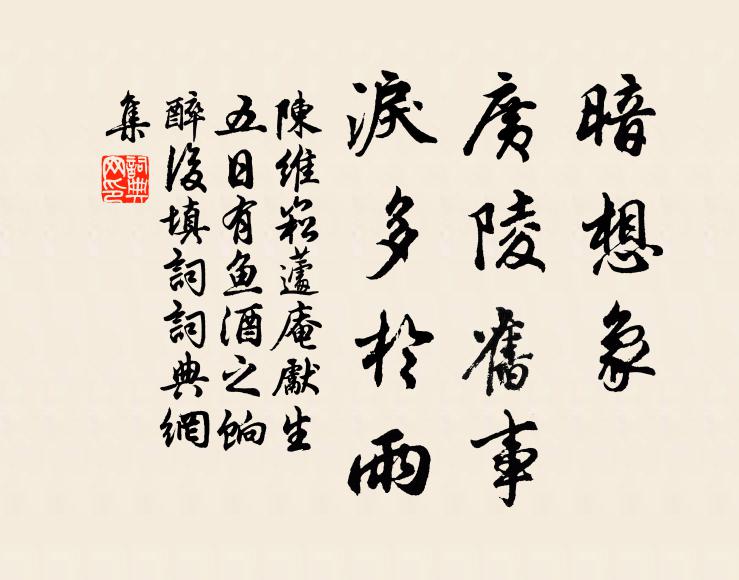 暗想象
廣陵舊事
淚多於雨
陳維崧蘧庵獻生
五日有魚酒之餉
醉後填詞詞典網
集
詞典
网印